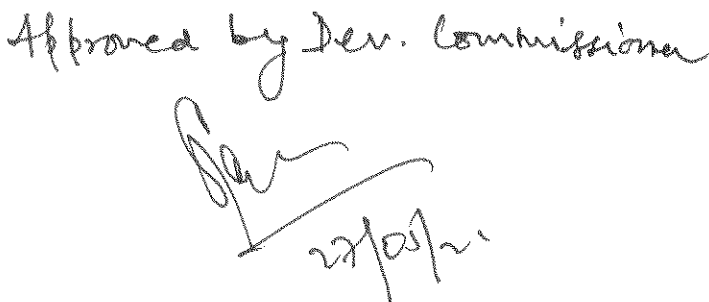 Approved by Dev. Commissioner